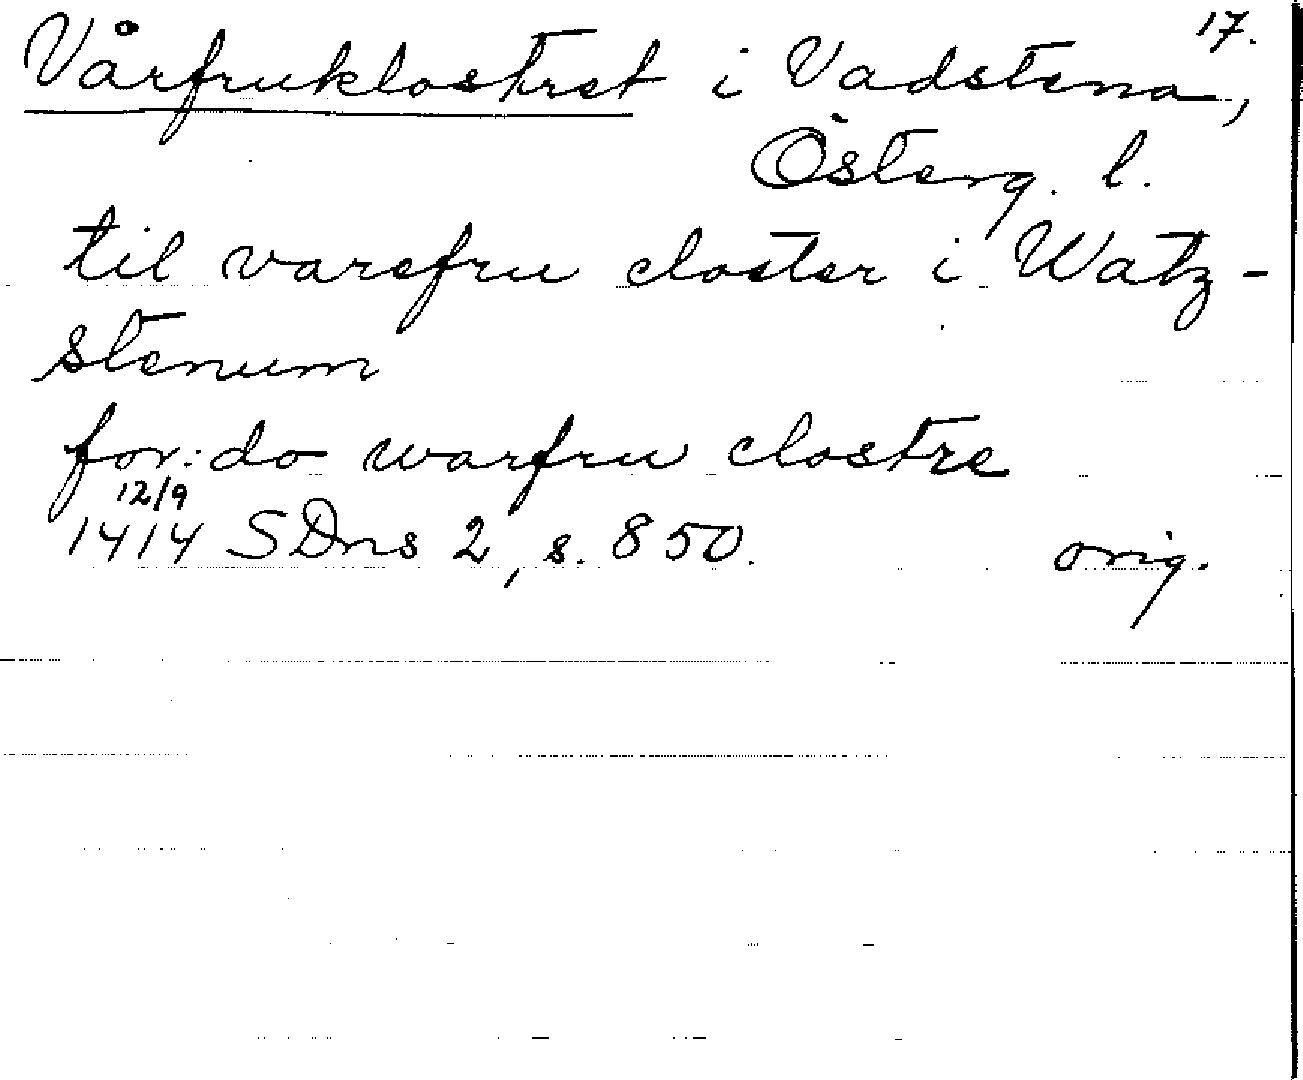 17.
Vårfruklostret i Vadstena,
Österg. l.
til varefru closter i Watz-
stenum
for:do warfru clostre
12/9
1414 SDns 2, s. 850. orig.